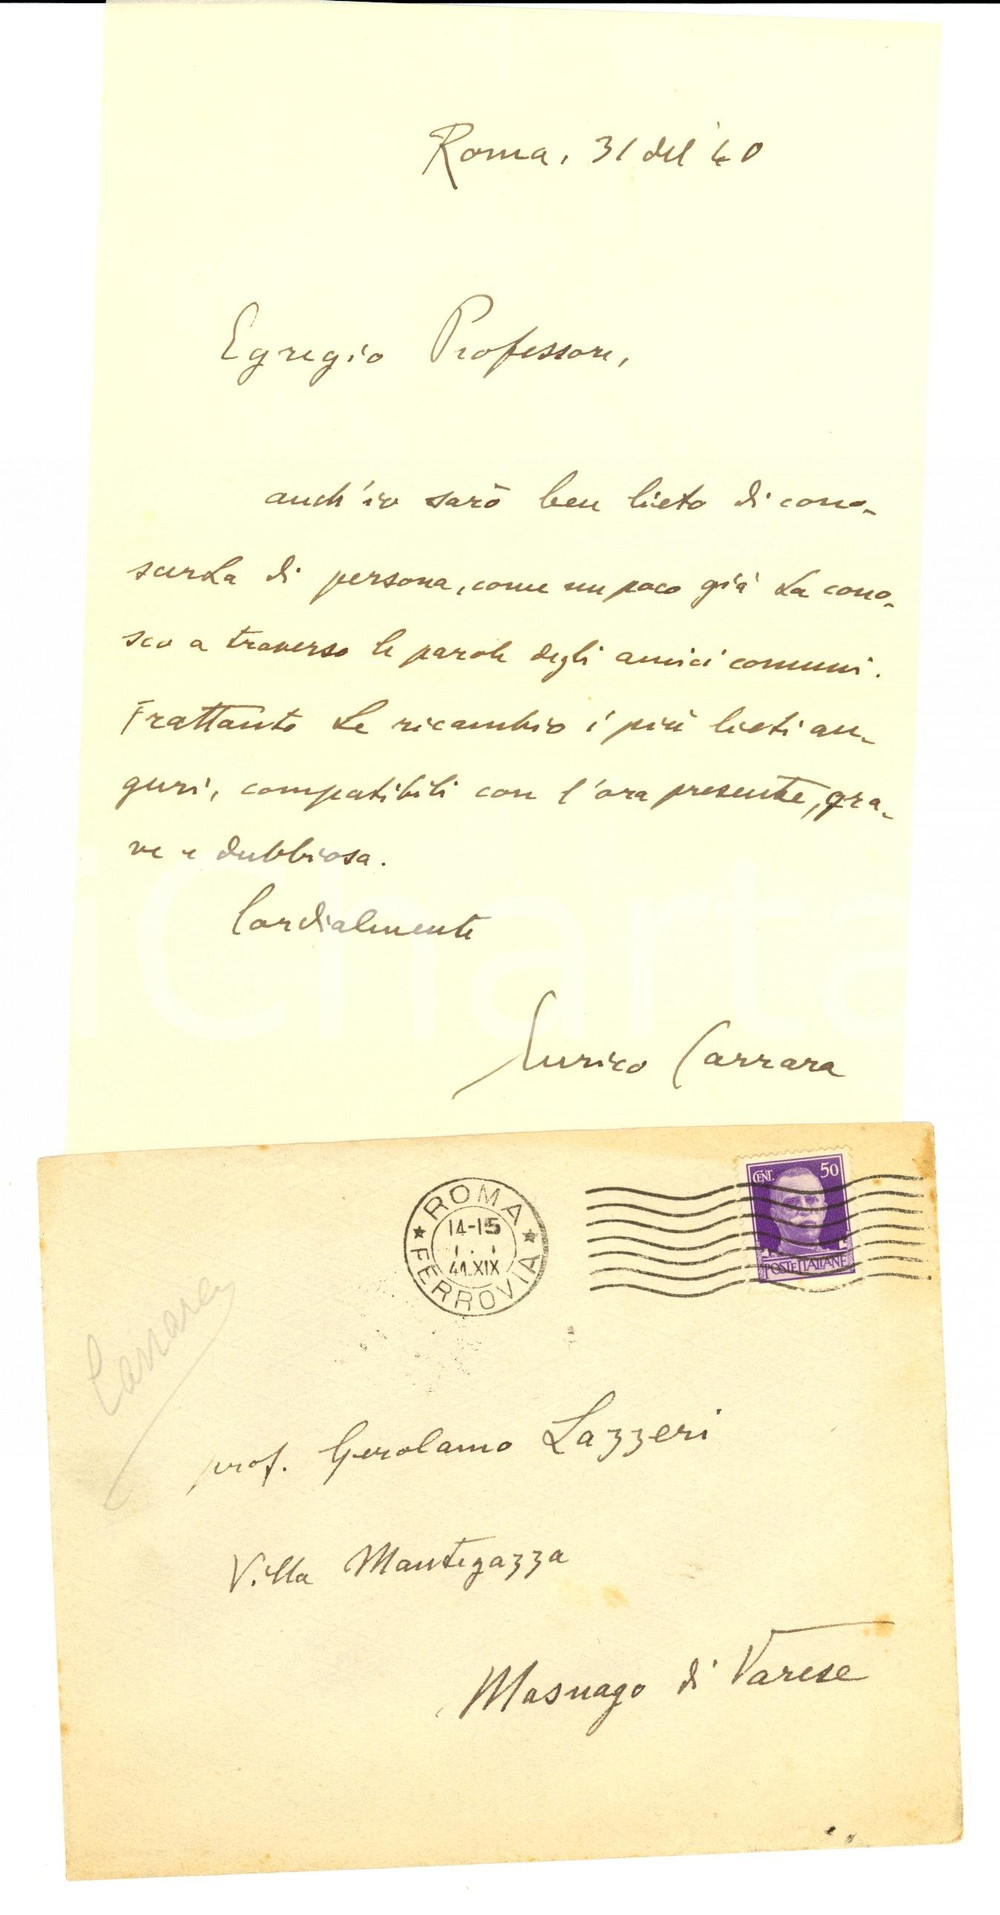 Roma, 31 del '40
Egregio Professore,
anch'io sarò ben lieto di cono-
scerLa di persona, come un poco già La cono-
sco a traverso le parole degli amici comuni.
Frattanto Le ricambio i più lieti au-
guri, compatibili con l'ora presente, gra-
ve e dubbiosa.
Cordialmente
Enrico Carrara
iCharta
ROMA
14-15
1 . 1
41.XIX
FERROVIA
CENT. 50
POSTE ITALIANE
Carrara
prof. Gerolamo Lazzeri
Villa Mantegazza
Masnago di Varese